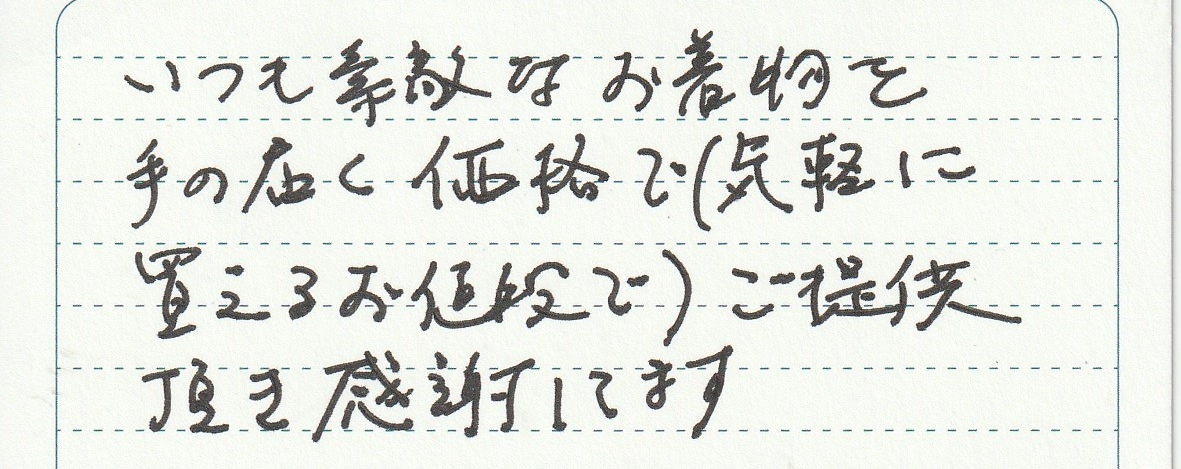 いつも素敵なお着物を
手の届く価格で(気軽に
買えるお値段で)ご提供
頂き感謝してます